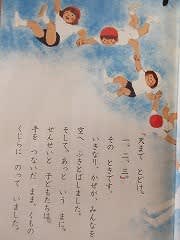 「天まで とどけ。
一、二、三。」
その ときです。
いきなり、かぜが、みんなを
空へ ふきとばしました。
そして、あっと いう まに、
せんせいと 子どもたちは、
手を つないだ まま、くもの
くじらに のって いました。